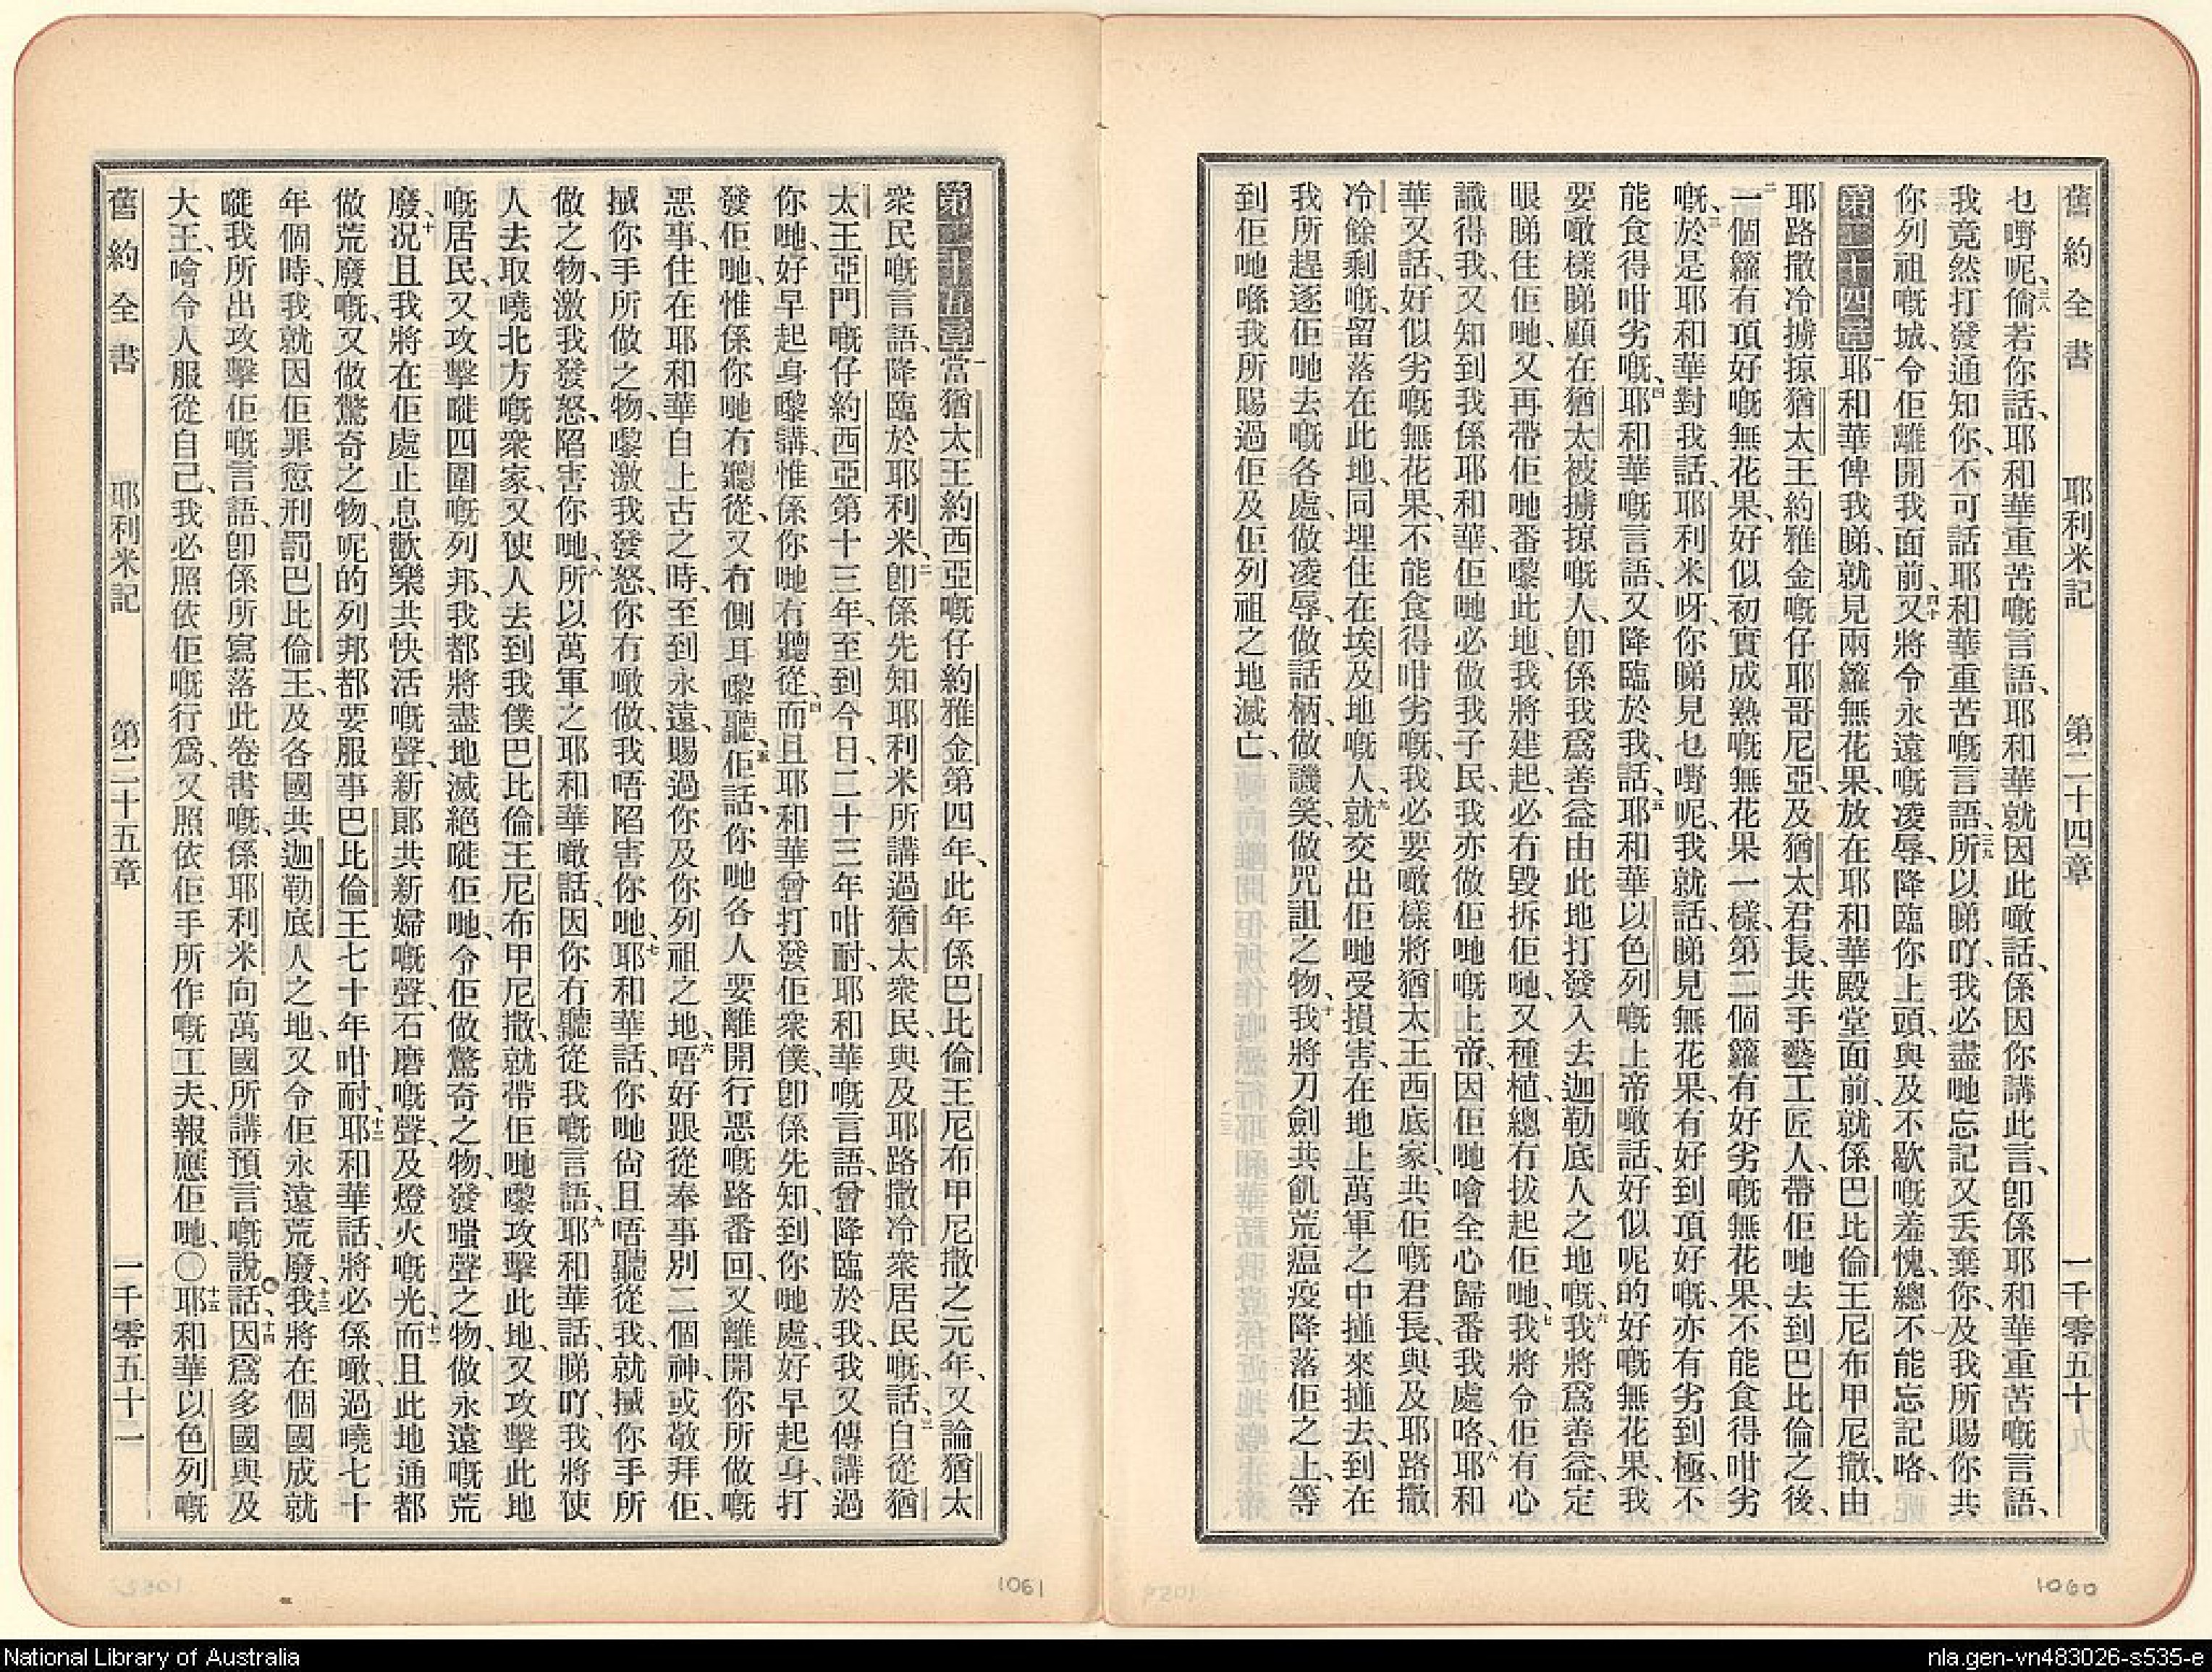 舊約全書 耶利米記 第二十四章 一千零五十九
乜嘢呢、三八倘若你話、耶和華重苦嘅言語、耶和華就因此噉話、係因你講此言、卽係耶和華重苦嘅言語、
我竟然打發通知你、不可話耶和華重苦嘅言語、三九所以睇吖、我必盡哋忘記又丟棄你、及我所賜你共
你列祖嘅城、令佢離開我面前、四十又將令永遠嘅凌辱、降臨你上頭、與及不歇嘅羞愧、總不能忘記咯、
第二十四章一耶和華俾我睇、就見兩籮無花果、放在耶和華殿堂面前、就係巴比倫王尼布甲尼撒、由
耶路撒冷擄掠猶太王約雅金嘅仔耶哥尼亞、及猶太君長、共手藝工匠人、帶佢哋去到巴比倫之後、
二一個籮有頂好嘅無花果、好似初實成熟嘅無花果一樣、第二個籮有好劣嘅無花果、不能食得咁劣
嘅、三於是耶和華對我話、耶利米呀、你睇見乜嘢呢、我就話、睇見無花果、有好到頂好嘅、亦有劣到極、不
能食得咁劣嘅、四耶和華嘅言語、又降臨於我、話、五耶和華以色列嘅上帝噉話、好似呢的好嘅無花果、我
要噉樣睇顧在猶太被擄掠嘅人、卽係我爲善益由此地打發入去迦勒底人之地嘅、六我將爲善益、定
眼睇住佢哋、又再帶佢哋番嚟此地、我將建起、必冇毀拆佢哋、又種植、總冇拔起佢哋、七我將令佢有心
識得我、又知到我係耶和華、佢哋必做我子民、我亦做佢哋嘅上帝、因佢哋噲全心歸番我處咯、八耶和
華又話、好似劣嘅無花果、不能食得咁劣嘅、我必要噉樣將猶太王西底家、共佢嘅君長、與及耶路撒
冷餘剩嘅、留落在此地、同埋住在埃及地嘅人、九就交出佢哋受損害、在地上萬軍之中搥來搥去、到在
我所趕逐佢哋去嘅各處、做凌辱、做話柄、做譏笑、做咒詛之物、十我將刀劍共飢荒瘟疫降落佢之上、等
到佢哋喺我所賜過佢及佢列祖之地滅亡、
第二十五章一當猶太王約西亞嘅仔約雅金第四年、此年係巴比倫王尼布甲尼撒之元年、又論猶太
衆民嘅言語、降臨於耶利米、二卽係先知耶利米所講過猶太衆民、與及耶路撒冷衆居民嘅、話、三自從猶
太王亞門嘅仔約西亞第十三年、至到今日、二十三年咁耐、耶和華嘅言語、曾降臨於我、我又傳講過
你哋、好早起身嚟講、惟係你哋冇聽從、四而且耶和華曾打發佢衆僕、卽係先知、到你哋處、好早起身、打
發佢哋、惟係你哋冇聽從、又冇側耳嚟聽、五佢話、你哋各人要離開行惡嘅路番回、又離開你所做嘅
惡事、住在耶和華自上古之時、至到永遠、賜過你及你列祖之地、六唔好跟從奉事別二個神、或敬拜佢、
搣你手所做之物、嚟激我發怒、你冇噉做、我唔陷害你哋、七耶和華話、你哋尙且唔聽從我、就搣你手所
做之物、激我發怒、陷害你哋、八所以萬軍之耶和華噉話、因你冇聽從我嘅言語、九耶和華話、睇吖、我將使
人去取嘵北方嘅衆家、又使人去到我僕巴比倫王尼布甲尼撒、就帶佢哋嚟攻擊此地、又攻擊此地
嘅居民、又攻擊嘥四圍嘅列邦、我都將盡地滅絕嘥佢哋、令佢做驚奇之物、發嗤聲之物、做永遠嘅荒
廢、十况且我將在佢處止息歡樂共快活嘅聲、新郞共新婦嘅聲、石磨嘅聲、及燈火嘅光、十一而且此地通都
做荒廢嘅、又做驚奇之物、呢的列邦都要服事巴比倫王七十年咁耐、十二耶和華話、將必係噉、過嘵七十
年個時、我就因佢罪愆刑罰巴比倫王、及各國共迦勒底人之地、又令佢永遠荒廢、十三我將在個國成就
嘥我所出攻擊佢嘅言語、卽係所寫落此卷書嘅、係耶利米向萬國所講預言嘅說話、十四因爲多國與及
大王、噲令人服從自己、我必照依佢嘅行爲、又照依佢手所作嘅工夫、報應佢哋、〇十五耶和華以色列嘅
舊約全書 耶利米記 第二十五章 一千零五十一
1061
1060
National Library of Australia
nla.gen-vn483026-s535-e